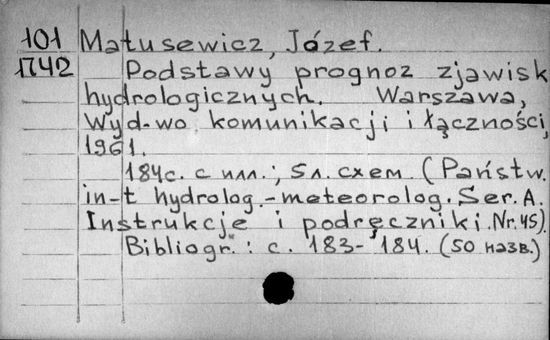 101 Matusewicz, Józef.
П742 Podstawy prognoz zjawisk
hydrologicznych. Warszawa,
Wyd-wo komunikacji i łączności,
1961.
184с. с илл.; 5л. схем. (Państw.
in-t hydrolog.-meteorolog. Ser. A.
Instrukcje i podręczniki. Nr. 45).
Bibliogr.: с. 183-184. (50 назв.)